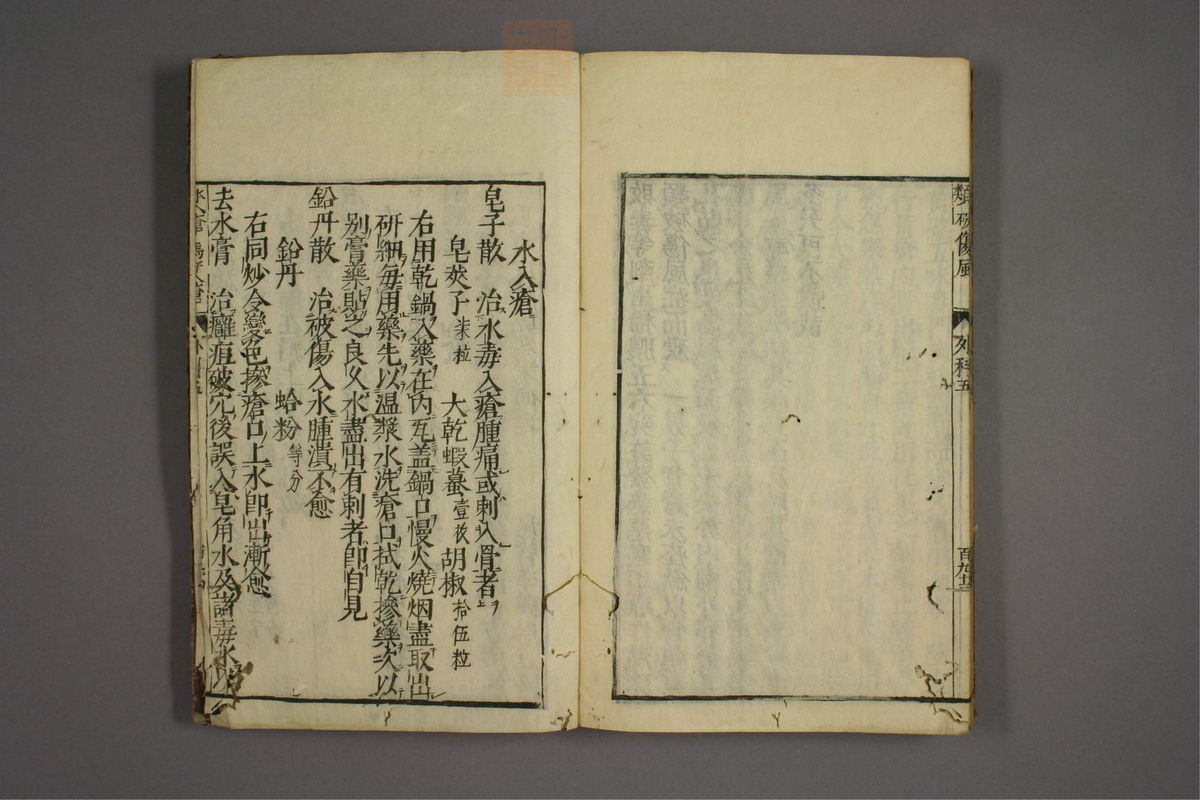 類破傷風 外科五 百九十三
水入瘡
皂子散 治水毒入瘡腫痛或刺入骨者
皂莢子 柒粒 大乾蝦蟇 壹枚 胡椒 拾伍粒
右用乾鍋入藥在內瓦盖鍋口慢火燒烟盡取出
研細每用藥先以温漿水洗瘡口拭乾摻藥次以
别膏藥貼之良久水盡出有刺者即自見
鉛丹散 治被傷入水腫潰不愈
鉛丹 蛤粉 等分
右同炒令變色摻瘡口上水即出漸愈
去水膏 治癰疽破穴後誤入皂角水及諸毒水以
水入瘡